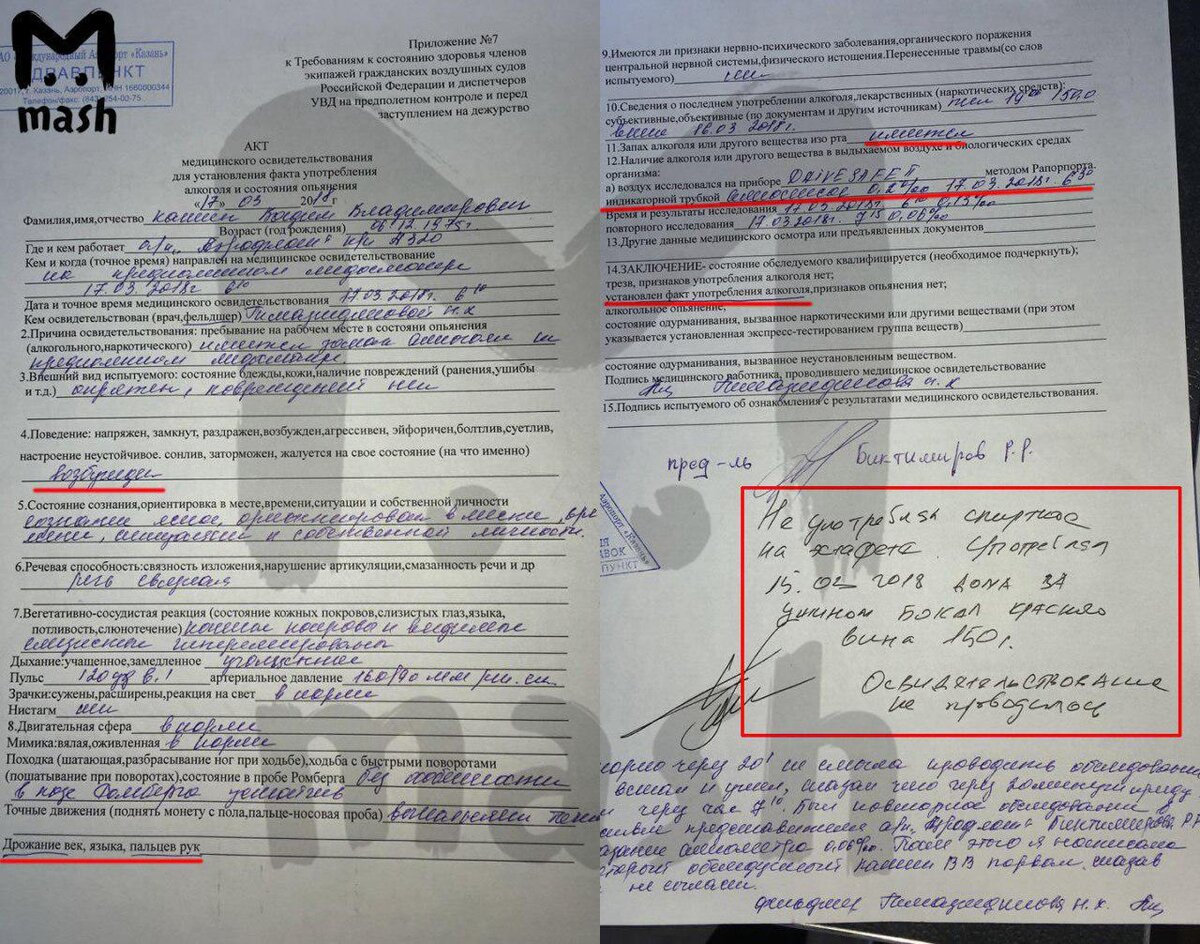 M.
mash
АО "Международный Аэропорт "Казань"
ЗДРАВПУНКТ
420017, г. Казань, Аэропорт, ИНН 1660000344
Телефон/факс: (843) 254-00-75
Приложение №7
к Требованиям к состоянию здоровья членов
экипажей гражданских воздушных судов
Российской Федерации и диспетчеров
УВД на предполетном контроле и перед
заступлением на дежурство
АКТ
медицинского освидетельствования
для установления факта употребления
алкоголя и состояния опьянения
«17» 03 2018г
Фамилия,имя,отчество Вадим Владимирович
Возраст (год рождения) 06.12.1975г.
Где и кем работает а/к „Аэрофлот" А320
Кем и когда (точное время) направлен на медицинское освидетельствование
на предполетном медосмотре
17.03.2018г 6 10
Дата и точное время медицинского освидетельствования 17.03.2018г. 6 10
Кем освидетельствован (врач,фельдшер) Н.Х
2.Причина освидетельствования: пребывание на рабочем месте в состоянии опьянения
(алкогольного,наркотического) имеется запах алкоголя на
предполетном медосмотре
3.Внешний вид испытуемого: состояние одежды,кожи,наличие повреждений (ранения,ушибы
и т.д.) опрятен, повреждений нет
4.Поведение: напряжен, замкнут, раздражен,возбужден,агрессивен, эйфоричен,болтлив,суетлив,
настроение неустойчивое. сонлив, заторможен, жалуется на свое состояние (на что именно)
возбужден
5.Состояние сознания,ориентировка в месте,времени,ситуации и собственной личности
сознание ясное, ориентирован в месте, вре
мени, ситуации и собственной личности.
6.Речевая способность:связность изложения,нарушение артикуляции,смазанность речи и др
речь связная
7.Вегетативно-сосудистая реакция (состояние кожных покровов,слизистых глаз,языка,
потливость,слюнотечение) кожные покровы и видимые
слизистые гиперемированы
Дыхание:учащенное,замедленное учащенное
Пульс 120 уд в 1' артериальное давление 160/90 мм рт. ст.
Зрачки:сужены,расширены,реакция на свет в норме
Нистагм нет
8.Двигательная сфера в норме
Мимика:вялая,оживленная в норме
Походка (шатающая,разбрасывание ног при ходьбе),ходьба с быстрыми поворотами
(пошатывание при поворотах),состояние в пробе Ромберга без особенностей
в позе Ромберга устойчив
Точные движения (поднять монету с пола,пальце-носовая проба) выполняет
Дрожание век, языка, пальцев рук
9.Имеются ли признаки нервно-психического заболевания,органического поражения
центральной нервной системы,физического истощения.Перенесенные травмы(со слов
испытуемого) нет
10.Сведения о последнем употреблении алкоголя,лекарственных (наркотических) средств:
субъективные,объективные (по документам и другим источникам) 19 00 150,0
вина 16.03 2018г.
11.Запах алкоголя или другого вещества изо рта имеется
12.Наличие алкоголя или другого вещества в выдыхаемом воздухе и биологических средах
организма:
а) воздух исследовался на приборе DRIVESAFE II методом Рапорпорта.
индикаторной трубкой 17.03.2018г. 6 30
Время и результаты исследования 17.03.2018г 6 10
повторного исследования 17.03.2018г 7 15 0,06‰
13.Другие данные медицинского осмотра или предъявленных документов
14.ЗАКЛЮЧЕНИЕ- состояние обследуемого квалифицируется (необходимое подчеркнуть);
трезв, признаков употребления алкоголя нет;
установлен факт употребления алкоголя,признаков опьянения нет;
алкогольное опьянение,
состояние одурманивания, вызванное наркотическими или другими веществами (при этом
указывается установленная экспресс-тестированием группа веществ)
состояние одурманивания, вызванное неустановленным веществом.
Подпись медицинского работника, проводившего медицинское освидетельствование
Н.Х
15.Подпись испытуемого об ознакомления с результатами медицинского освидетельствования.
пред-ль Биктимиров Р.Р.
Аэропорт "Казань"
Не употреблял спиртное
на эстафете. Употреблял
2018 дома за
ужином бокал красного
вина 150г.
Освидетельствование
не проводилось
через 20' не смогла проводить обследование
встал и ушел, сказал что через
через час 7 10. Был повторное обследование в
представителя а/к „Аэрофлот" Биктимирова Р.Р
0.06‰. После этого я написала
обследуемый В.В порвал, сказав
не согласен.
фельдшер Н.Х.
mash